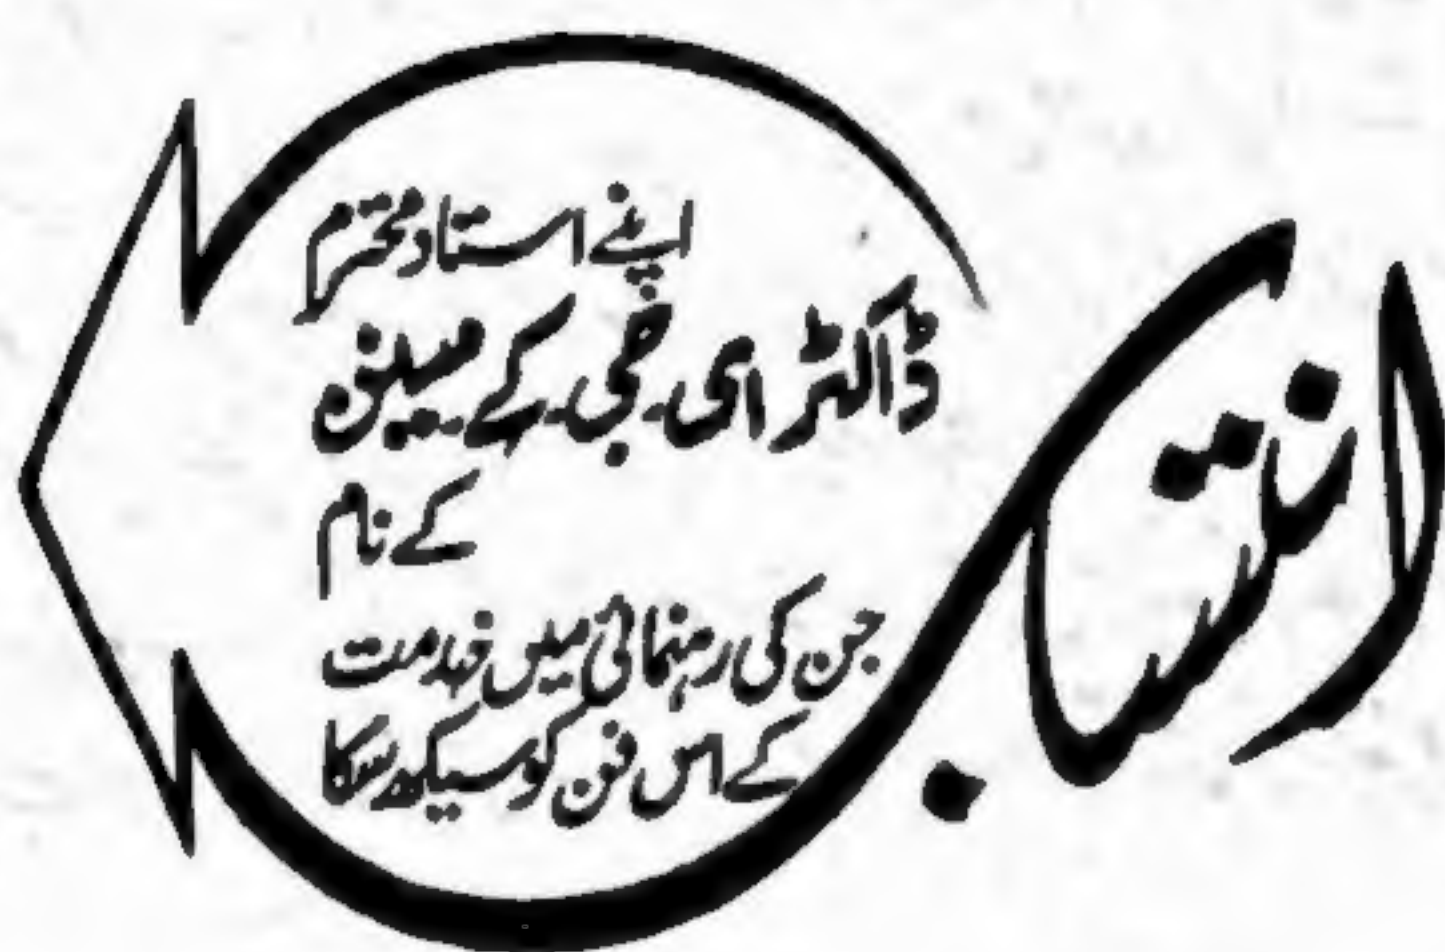 انتساب
اپنے استاد محترم
ڈاکٹر ای۔ جی۔ کے۔
کے نام
جن کی رہنمائی میں خدمت
کے اس فن کو سیکھ سکا